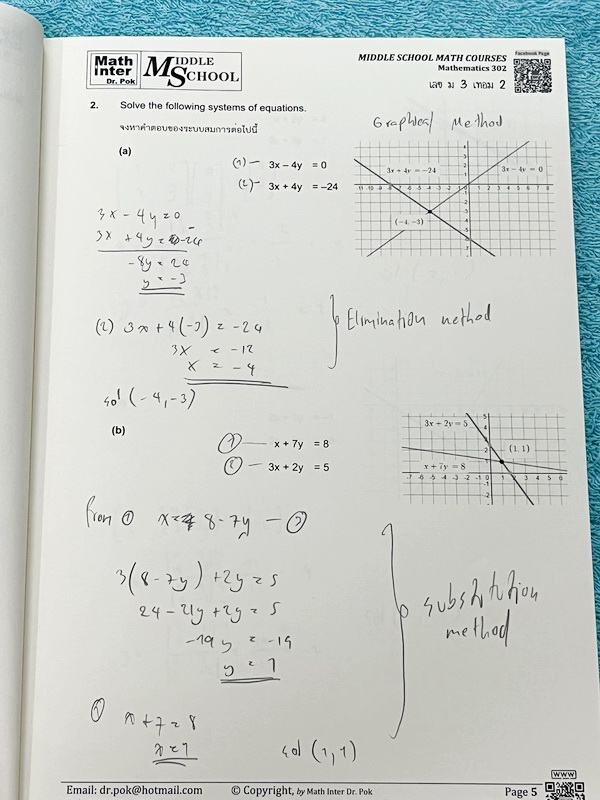 Math
Inter
Dr. Pok
MIDDLE
SCHOOL
MIDDLE SCHOOL MATH COURSES
Mathematics 302
เลข ม 3 เทอม 2
Facebook Page
2. Solve the following systems of equations.
จงหาคำตอบของระบบสมการต่อไปนี้
Graphical Method
(a)
(1) — 3x – 4y = 0
(2) — 3x + 4y = –24
3x + 4y = −24
3x − 4y = 0
(−4, −3)
-11 -10 -9 -8 -7 -6 -5 -4 -3 -2 -1 0 1 2 3 4 5 6 7 8
3x - 4y = 0
3x + 4y = -24
-8y = 24
y = -3
(2) 3x + 4(-3) = -24
3x = -12
x = -4
Elimination method
sol (-4, -3)
(b)
① — x + 7y = 8
② — 3x + 2y = 5
3x + 2y = 5
(1, 1)
x + 7y = 8
-7 -6 -5 -4 -3 -2 -1 0 1 2 3 4 5 6
from ① x = 8 - 7y — ③
3(8 - 7y) + 2y = 5
24 - 21y + 2y = 5
-19y = -19
y = 1
substitution
method
① x + 7 = 8
x = 1
sol (1, 1)
WWW
Email: dr.pok@hotmail.com © Copyright, by Math Inter Dr. Pok Page 5